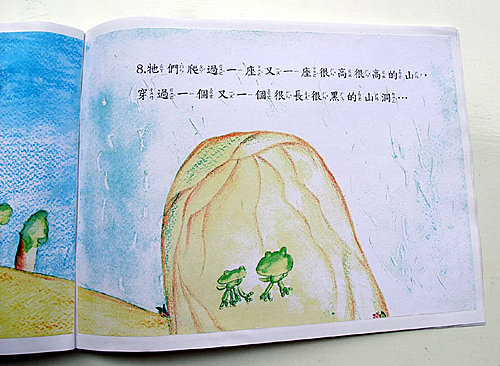 8.牠們爬過一座又一座很高很高的山‥
穿過一個又一個很長很黑的山洞…